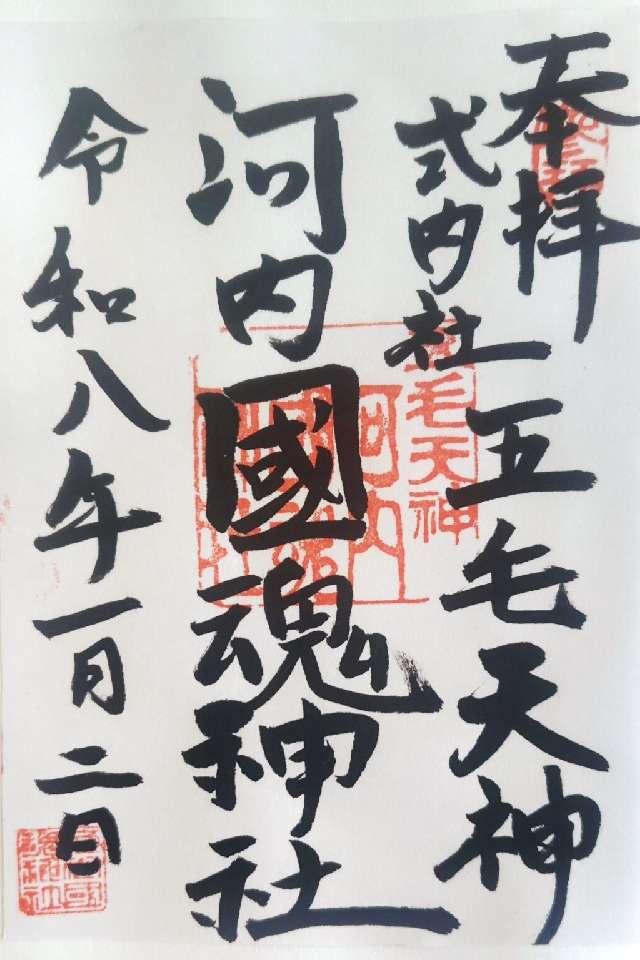 奉拝
式内社
五毛天神
河内國魂神社
令和八年一月二日
五毛天神